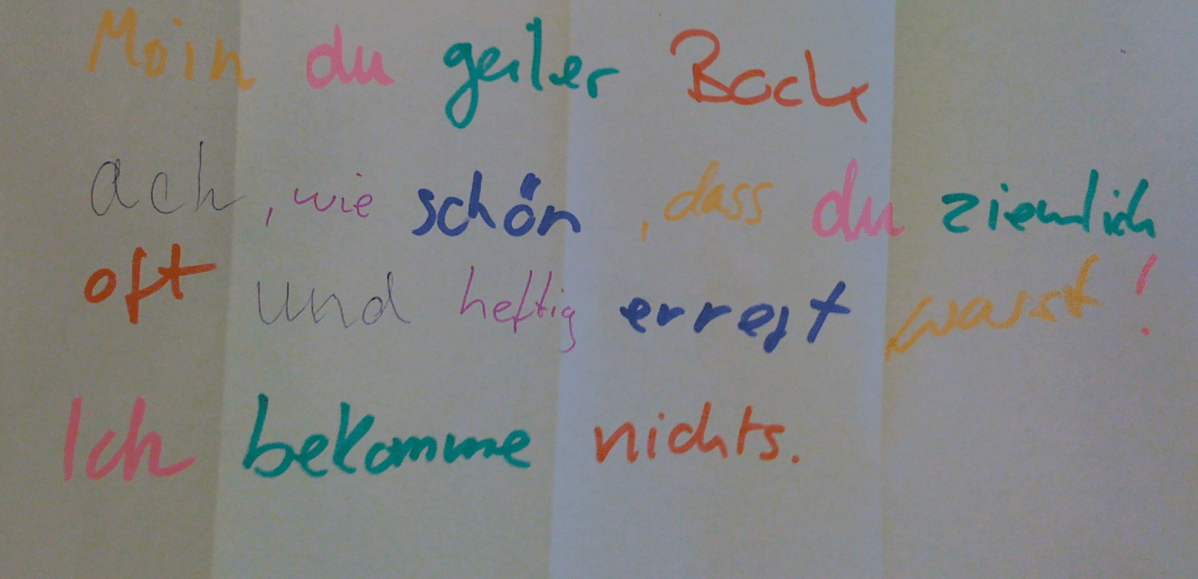 Moin du geiler Bock
ach, wie schön, dass du ziemlich
oft und heftig erregt warst!
Ich bekomme nichts.